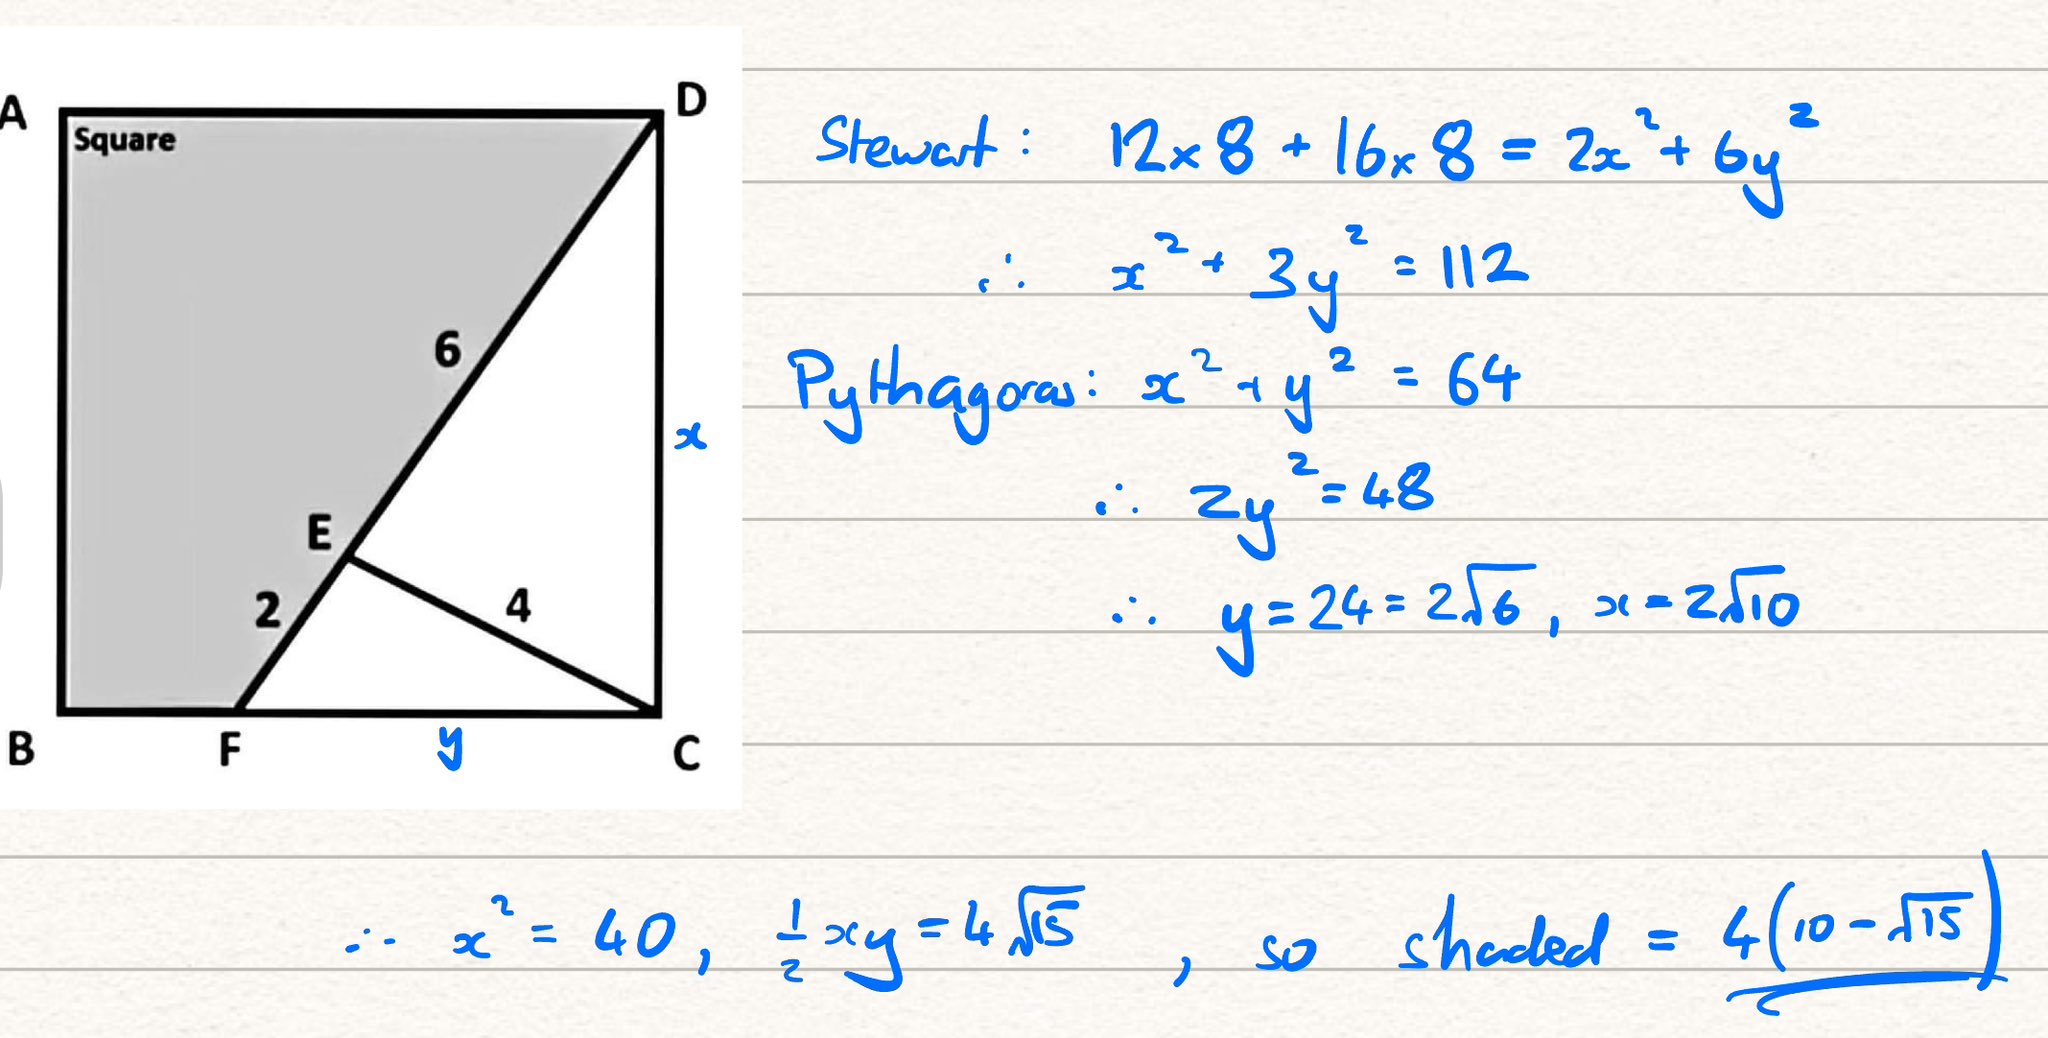 A
D
Square
Stewart: 12 × 8 + 16 × 8 = 2x² + 6y²
∴ x² + 3y² = 112
6
Pythagoras: x² + y² = 64
x
∴ 2y² = 48
E
2
4
∴ y = 24 = 2√6, x = 2√10
B
F
y
C
∴ x² = 40, ½xy = 4√15, so shaded = 4(10 - √15)